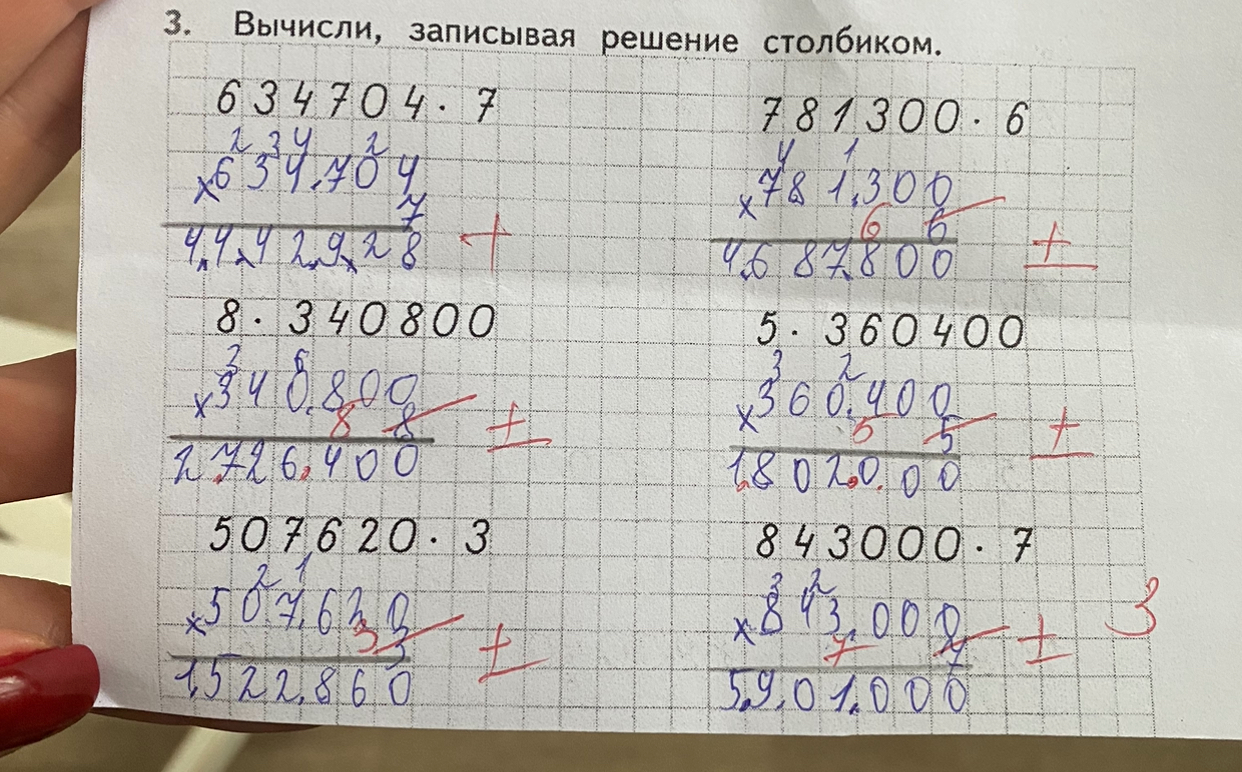 3. Вычисли, записывая решение столбиком.
634704 · 7
2 34 2
×634.704
7
4.4.42.9.28 +
781300 · 6
4 1
×781.300
6 6
4.687.800 ±
8 · 340800
3 6
×340.800
8 8
2.726.400 ±
5 · 360400
3 2
×360.400
5 5
1.802.0.00 ±
507620 · 3
2 1
×507.620
3 3
1.522.860 ±
843000 · 7
3 2
×843.000
7 7
5.9.01.000 ±
3